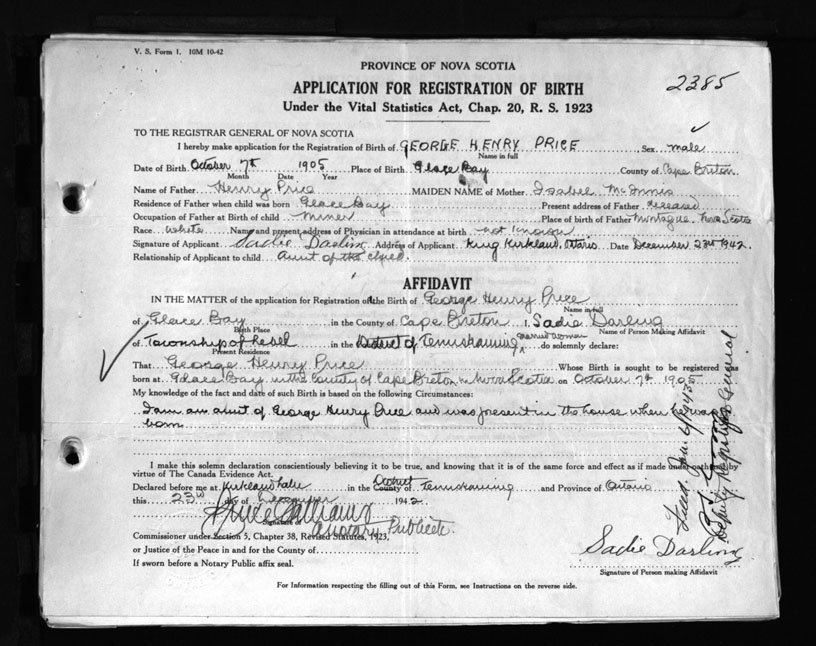 V. S. Form 1. 10M 10-42
PROVINCE OF NOVA SCOTIA
2385
APPLICATION FOR REGISTRATION OF BIRTH
Under the Vital Statistics Act, Chap. 20, R. S. 1923
TO THE REGISTRAR GENERAL OF NOVA SCOTIA
I hereby make application for the Registration of Birth of GEORGE HENRY PRICE Sex male
Name in full
Date of Birth October 7th 1905 Place of Birth Glace Bay County of Cape Breton
Month Date Year
Name of Father Henry Price MAIDEN NAME of Mother Isabel McInnis
Residence of Father when child was born Glace Bay Present address of Father deceased
Occupation of Father at Birth of child miner Place of birth of Father Montague Nova Scotia
Race white Name and present address of Physician in attendance at birth not known
Signature of Applicant Sadie Darling Address of Applicant King Kirkland, Ontario Date December 23rd 1942.
Relationship of Applicant to child Aunt of the
AFFIDAVIT
IN THE MATTER of the application for Registration of the Birth of George Henry Price
Name in full
of Glace Bay in the County of Cape Breton I, Sadie Darling
Birth Place Name of Person Making Affidavit
of Township of Lebel in the District of Temiskaming married woman do solemnly declare:
Present Residence
That George Henry Price Whose Birth is sought to be registered was
born at Glace Bay in the County of Cape Breton in Nova Scotia on October 7th 1905
My knowledge of the fact and date of such Birth is based on the following Circumstances:
I am an aunt of George Henry Price and was present in the house when he was
born
I make this solemn declaration conscientiously believing it to be true, and knowing that it is of the same force and effect as if made under oath and by
virtue of The Canada Evidence Act.
Declared before me at Kirkland Lake in the County of District Temiskaming and Province of Ontario
this 23rd day of December 1942.
Signature of
a Notary Public
Commissioner under Section 5, Chapter 38, Revised Statutes, 1923,
or Justice of the Peace in and for the County of
If sworn before a Notary Public affix seal.
Sadie Darling
Signature of Person making Affidavit
For Information respecting the filling out of this Form, see Instructions on the reverse side.
Deputy Registrar General